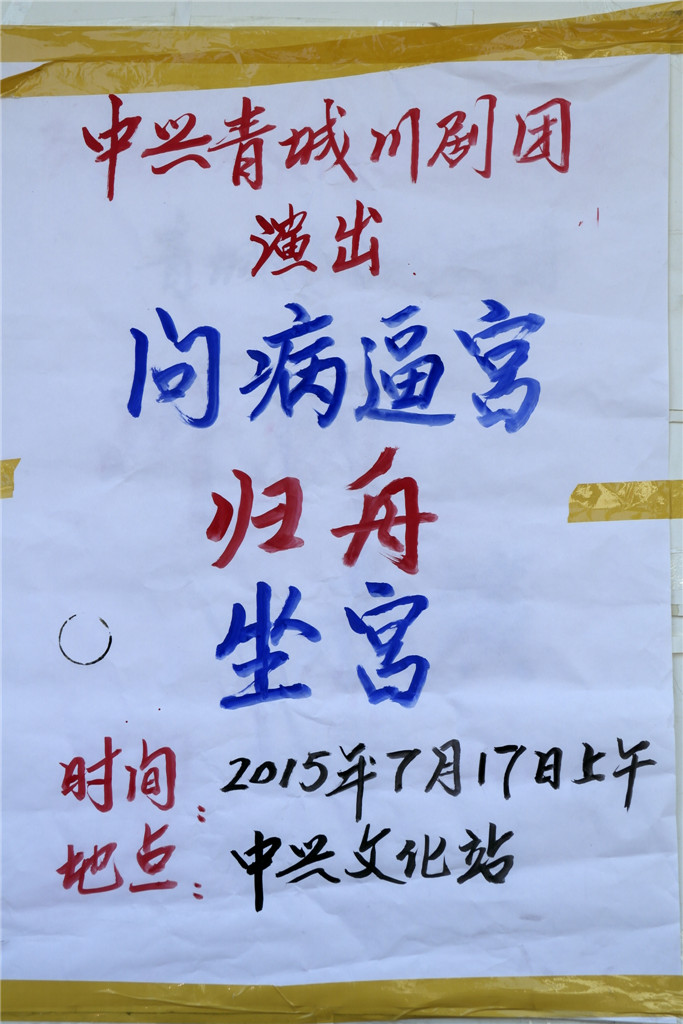 中兴青城川剧团
演出
问病逼宫
归舟
坐宫
时间：2015年7月17日上午
地点：中兴文化站